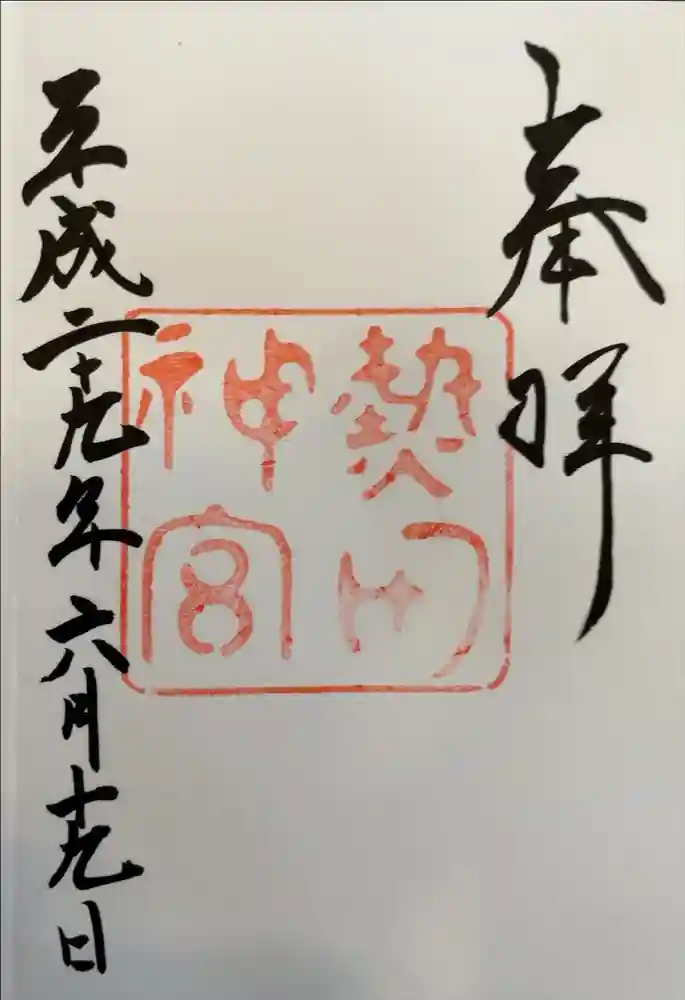 奉拝
熱田
神宮
平成二十九年六月十九日